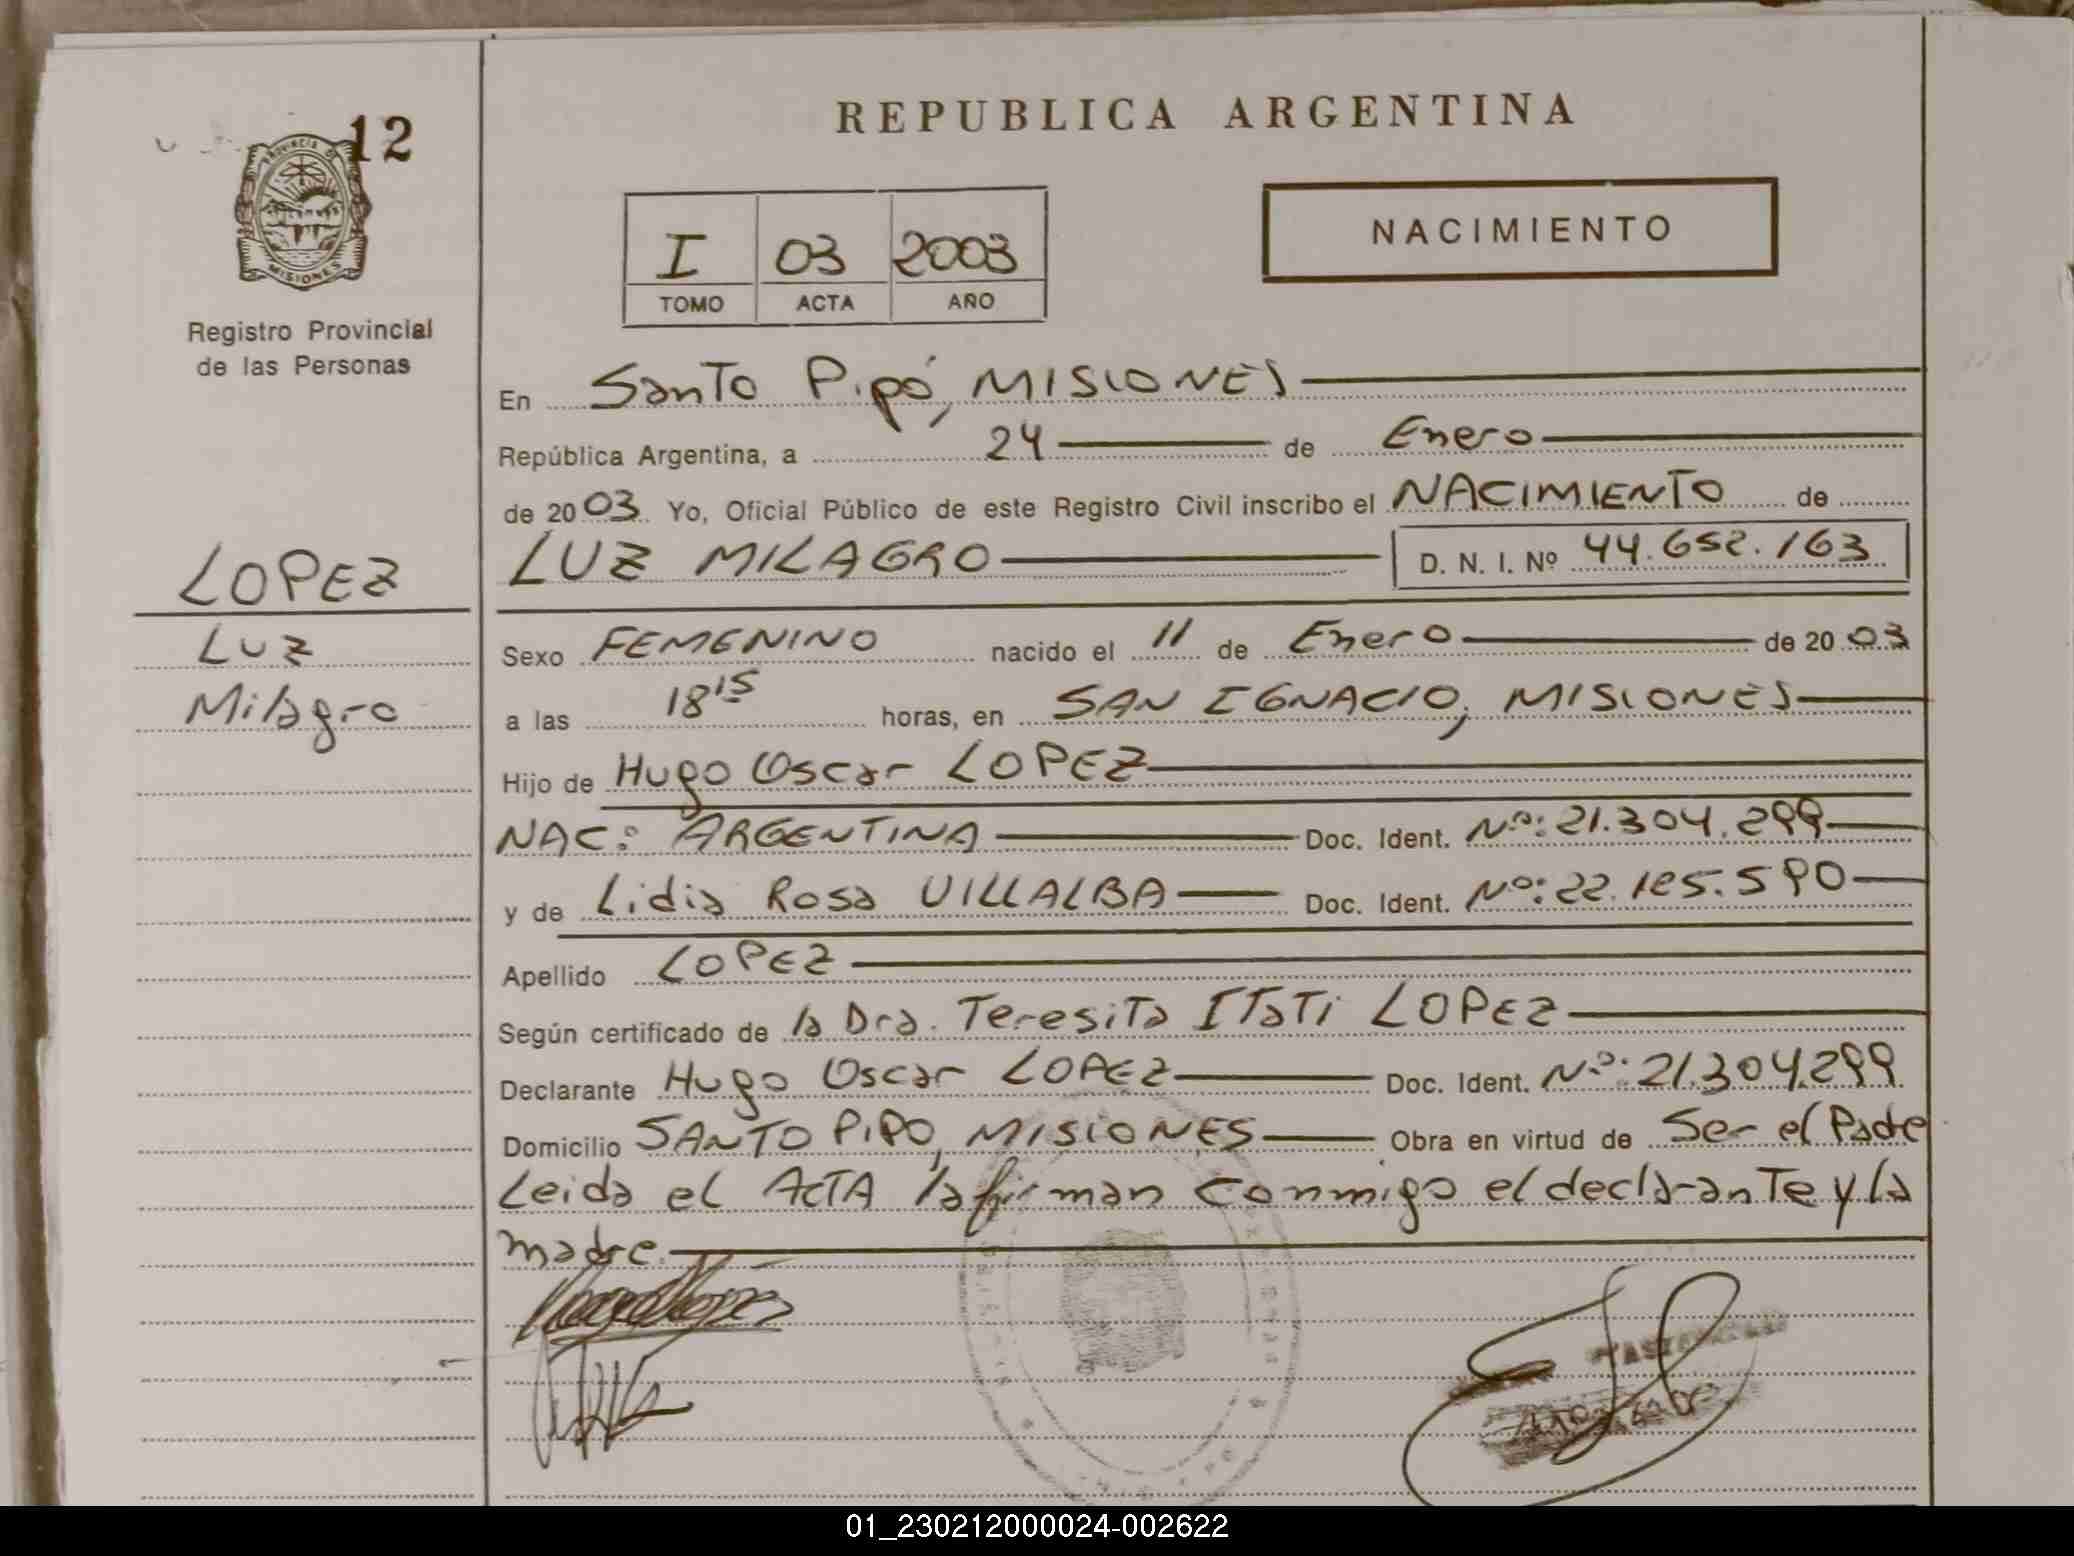 12
PROVINCIA DE
MISIONES
Registro Provincial
de las Personas
REPUBLICA ARGENTINA
I 03 2003
TOMO ACTA AÑO
NACIMIENTO
En Santo Pipó, MISIONES
República Argentina, a 24 de Enero
de 2003 Yo, Oficial Público de este Registro Civil inscribo el NACIMIENTO de
LUZ MILAGRO D. N. I. Nº 44.652.163
LOPEZ
Luz
Milagro
Sexo FEMENINO nacido el 11 de Enero de 2003
a las 18 15 horas, en SAN IGNACIO, MISIONES
Hijo de Hugo Oscar LOPEZ
NAC: ARGENTINA Doc. Ident. Nº: 21.304.299
y de Lidia Rosa VILLALBA Doc. Ident. Nº: 22.185.590
Apellido LOPEZ
Según certificado de la Dra. Teresita ITaTi LOPEZ
Declarante Hugo Oscar LOPEZ Doc. Ident. Nº: 21.304.299
Domicilio SANTO PIPO, MISIONES Obra en virtud de Ser el Padre
Leida el ACTA la firman conmigo el declarante y la
madre.
01_230212000024-002622